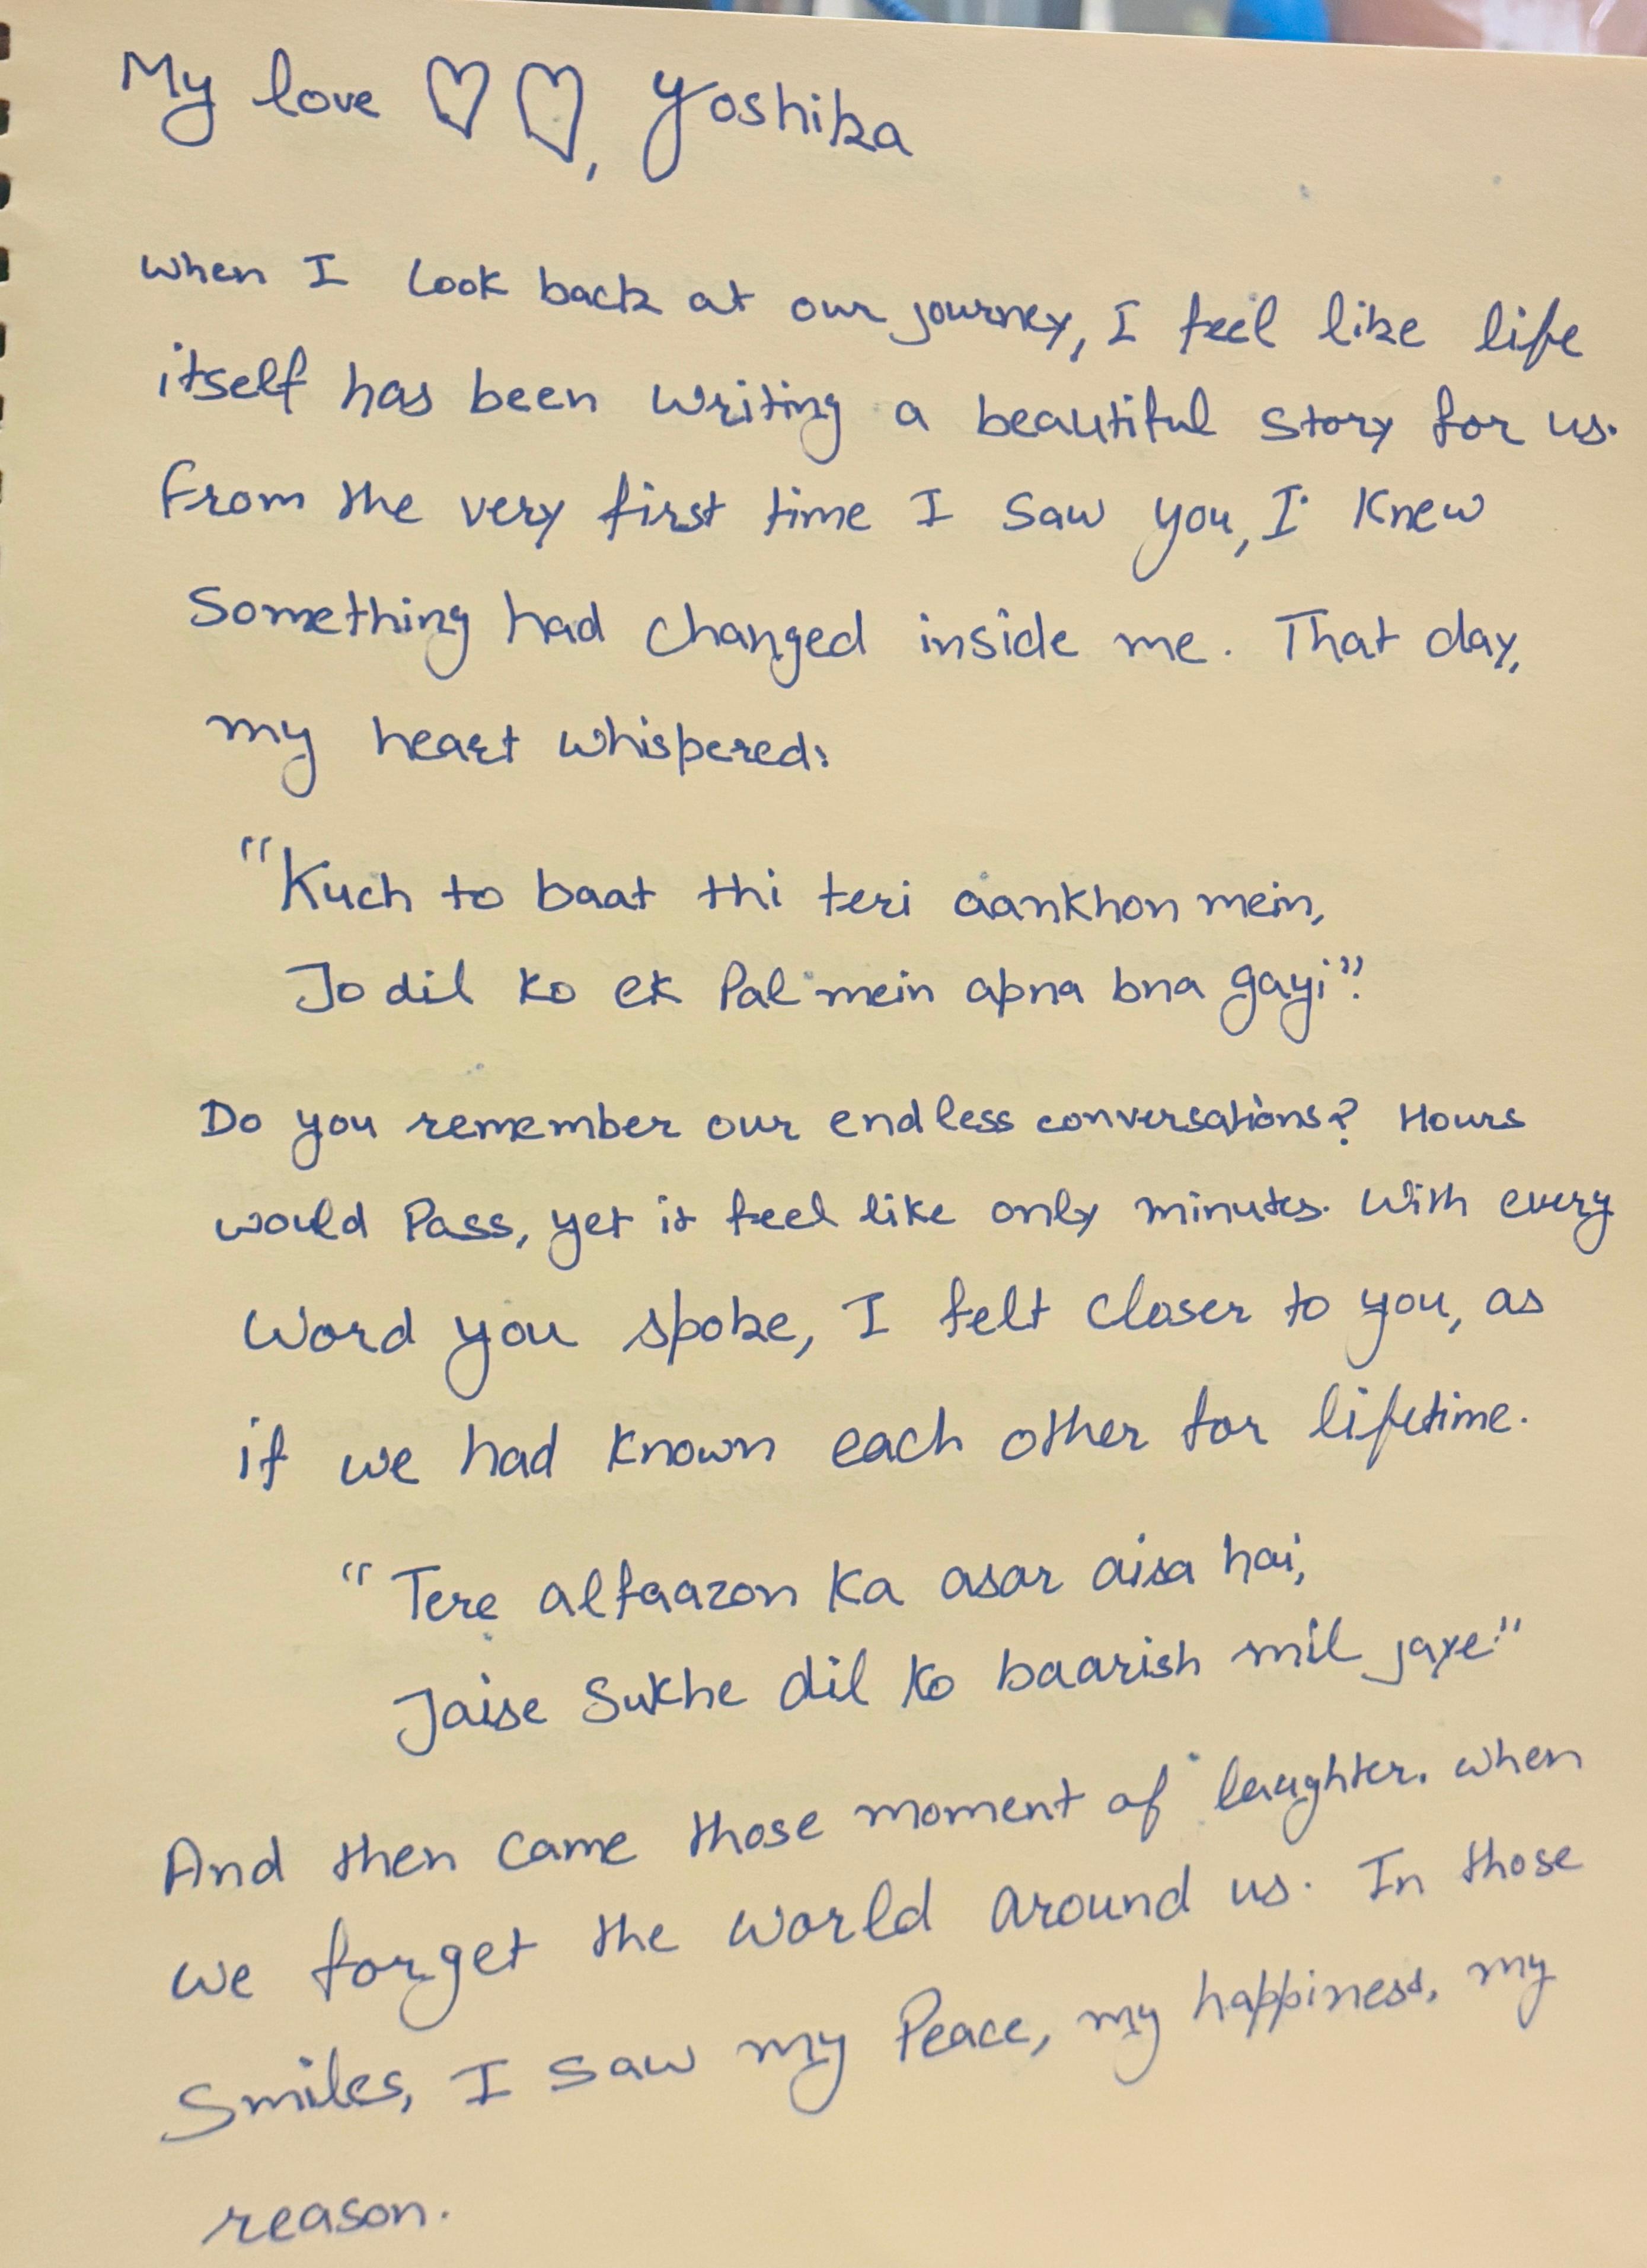 My love ♡♡, Yoshika
When I look back at our journey, I feel like life
itself has been writing a beautiful story for us.
From the very first time I saw you, I knew
Something had changed inside me. That day,
my heart whispered:
"Kuch to baat thi teri aankhon mein,
Jo dil ko ek Pal mein apna bna gayi".
Do you remember our endless conversations? Hours
would Pass, yet it feel like only minutes. With every
Word you spoke, I felt closer to you, as
if we had known each other for lifetime.
"Tere alfaazon ka asar aisa hai,
Jaise Sukhe dil ko baarish mil jaye."
And then came those moment of laughter. when
we forget the world around us. In those
Smiles, I saw my Peace, my happiness, my
reason.